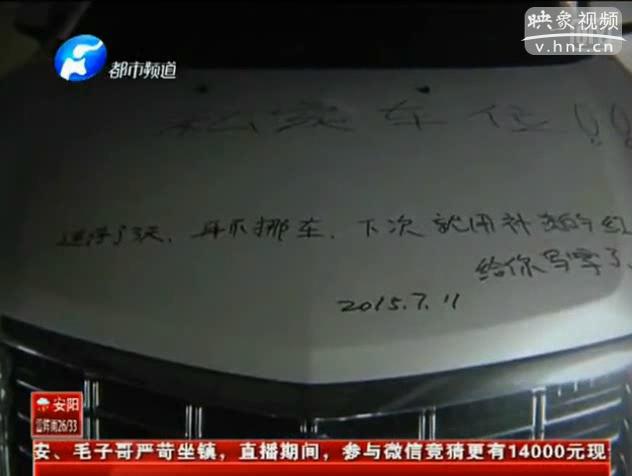 映象视频
v.hnr.cn
都市频道
私家车位!!
连停了3天，再不挪车，下次就用补的红
给你写字了
2015.7.11
安阳
雷阵雨26/33
安、毛子哥严苛坐镇，直播期间，参与微信竞猜更有14000元现